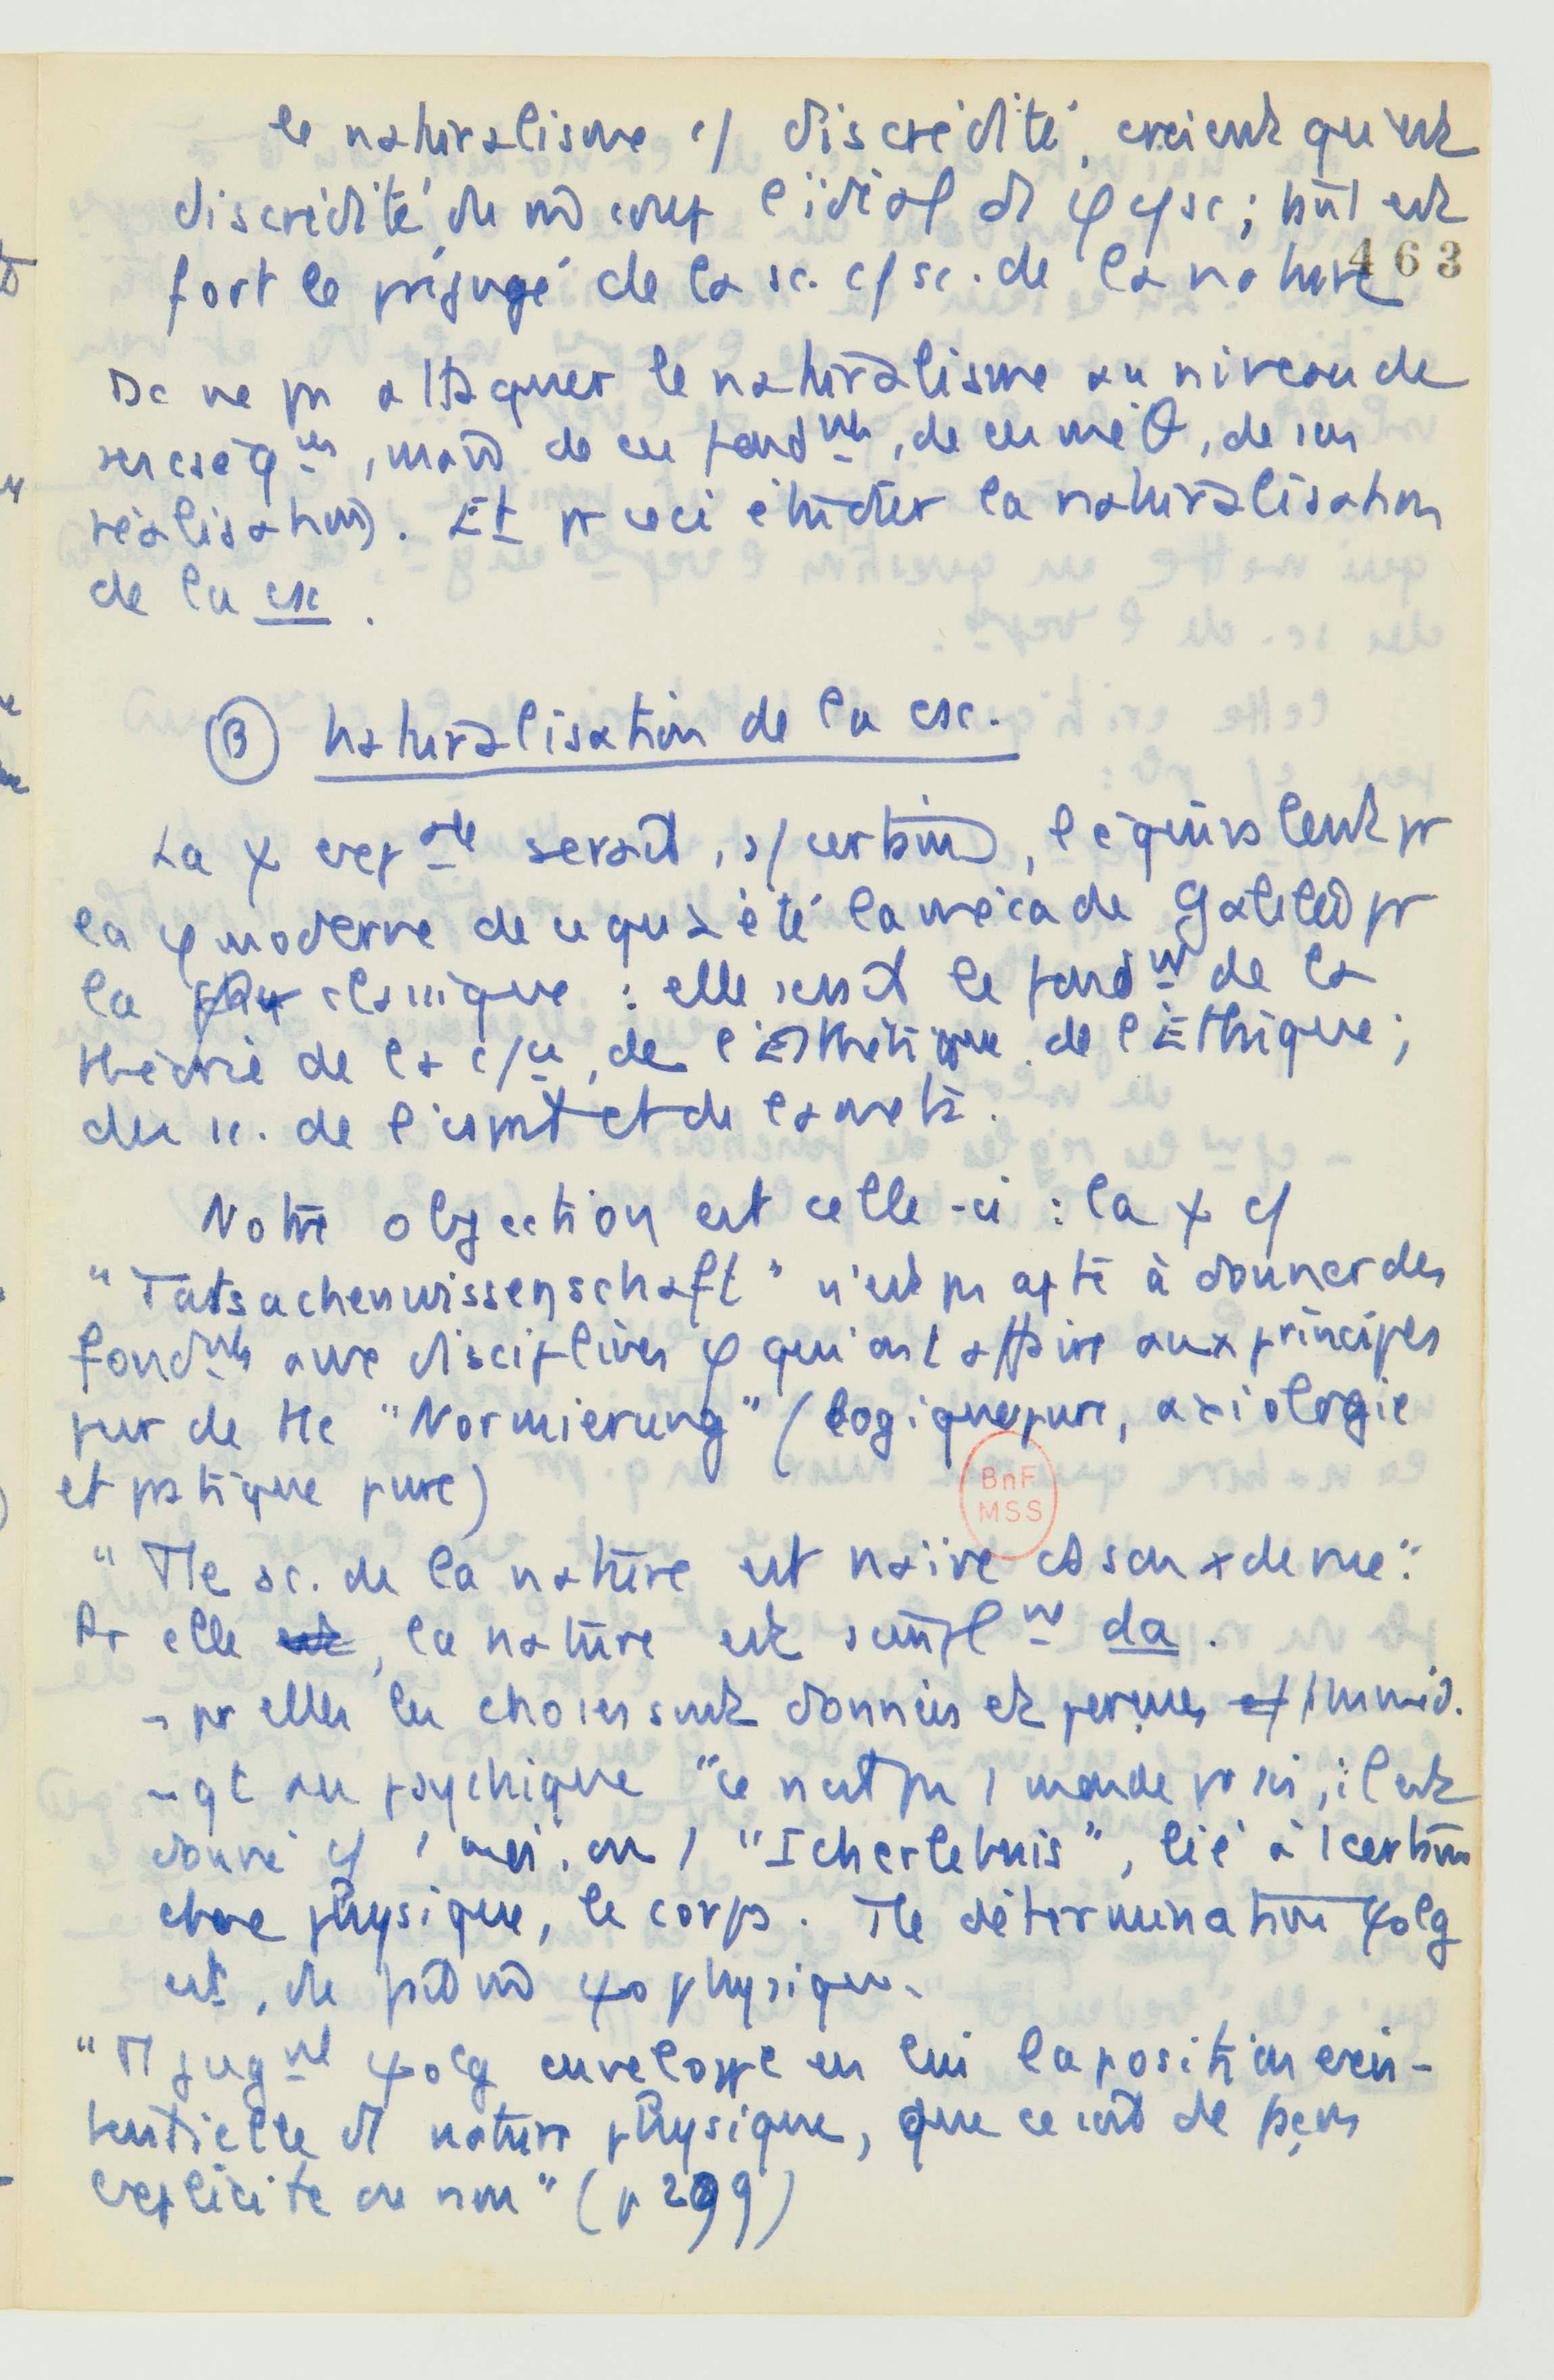 le naturalisme c/ discrédité, croient qu'est
discrédité du m̂ coup l'idéal d φ c/ sc ; tût est
fort le préjugé de la sc. c/ sc. de la nature
463
Dc ne ps attaquer le naturalisme au niveau de
ses cséq ces, mais de ses fond mts, de sa méθ, de ses
réalisations. Et pr ceci étudier la naturalisation
de la csc.
(B) Naturalisation de la csc.
La ψ exp ale serait, s/ certains, l'équivalent pr
la φ moderne de ce qu'a été la méca de Galilée pr
la classique : elle serait le fond mt de la
théorie de la c/ce, de l'Esthétique, de l'Ethique ;
des sc. de l'esprit et de la méta.
Notre objection est celle-ci : la ψ c/
"Tatsachenwissenschaft" n'est ps apte à donner des
fond mts aux disciplines φ qui ont affaire aux principes
purs de tte "Normierung" (logique pure, axiologie
et pratique pure)
BnF
MSS
"Tte sc. de la nature est naïve ds son x de vue".
Pr elle, la nature est simpl mt da.
- pr elles les choses sont données et perçues immed.
- qt au psychique "ce n'est ps 1 monde pr soi, il est
donné c/ 1 moi, ou 1 "Icherlebnis", lié à 1 certaine
chose physique, le corps. Tte détermination ψolg
est, de psychophysique.
"Tt jug mt ψolg enveloppe en lui la position exis-
tentielle d nature physique, que ce soit de façon
explicite ou non" (p 299)